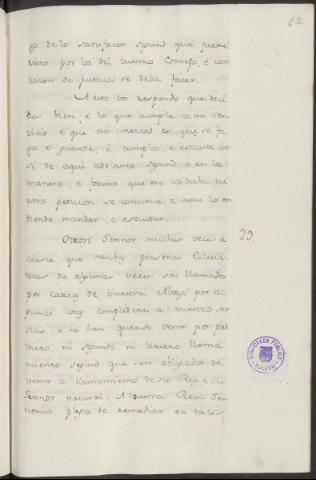 62
go de lo satisfacer segund que fuere
visto por los del vuestro Consejo, é con
daron de justicia se deba facer.
A esto vos respondo que deci
des bien, é lo que cumple a mi ser
vicio, é que mi merced es que se fa
ga, é guarde, é cumpla, e execute an
si de aqui adelante segund, e en la
manera, e forma que en la dicha vu
estra peticion se contiene, e ansi lo en
tiendo mandar, e executar.
Otrosi Sennor, muchas veces a
29.
caesce que muchas personas Eclesias
ticas de algunas veces son llamados
por cartas de vuestra Alteza por al
gunas cosas cumplideras a vuestro ser
vicio, e no han querido venir por pri
mero, ni segundo, ni tercero llama
miento segund que son obligados de
venir a llamamiento de su Rey e su
Sennor natural: A vuestra Real Sen
noria plega de remediar en tales
BIBLIOTECA PUBLICA
TOLEDO